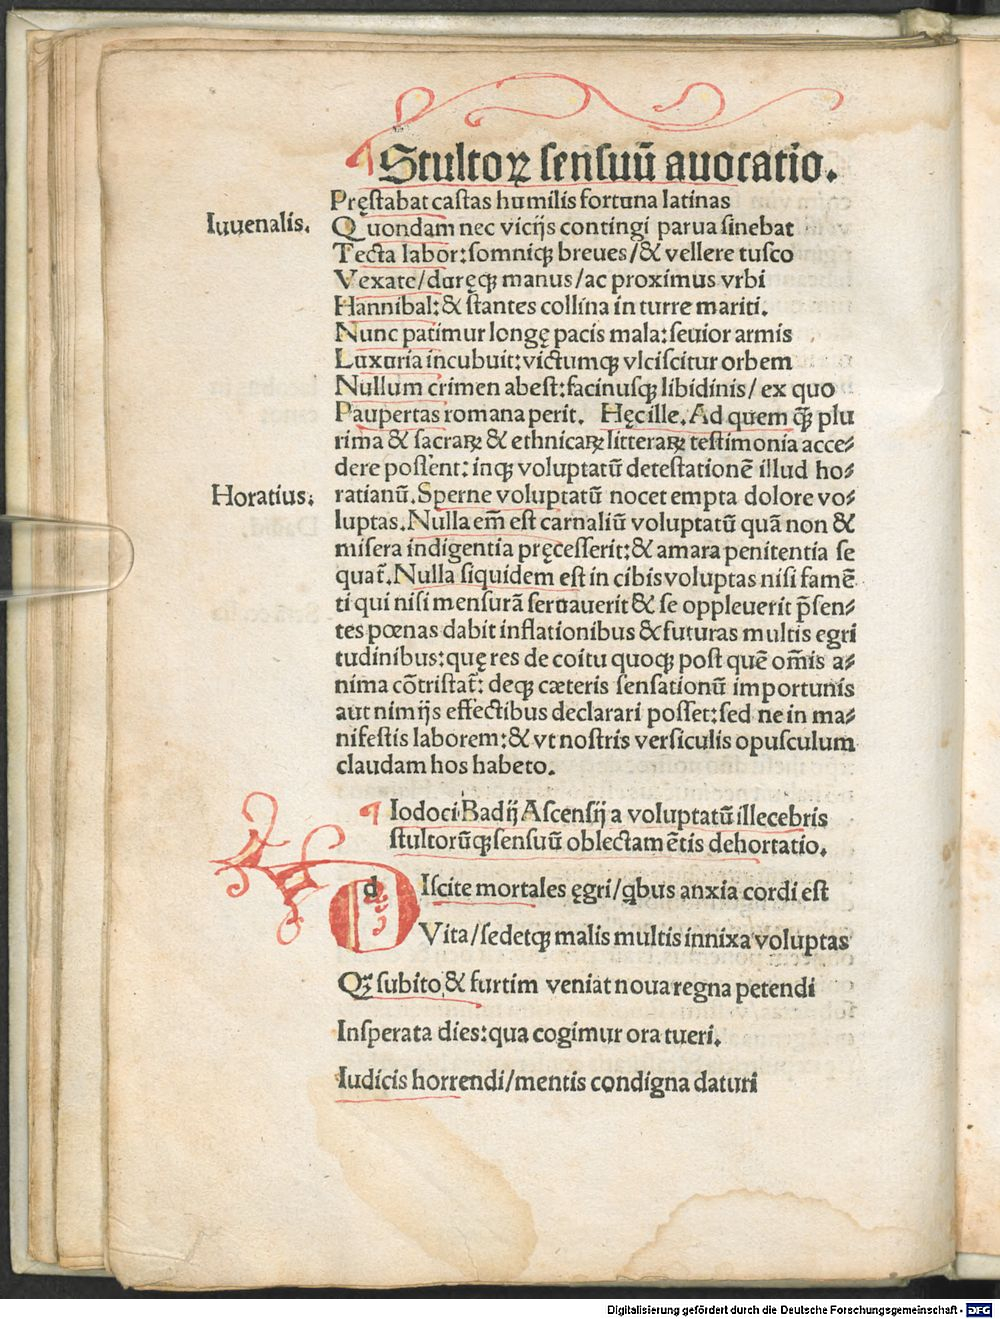 Stultoꝝ ſenſuū auocatio.
Pręſtabat caſtas humilis fortuna latinas
Iuuenalis.
Quondam nec vicijs contingi parua ſinebat
Tecta labor: ſomniqꝫ breues/& vellere tuſco
Vexate/duręqꝫ manus/ac proximus vrbi
Hannibal: & ſtantes collina in turre mariti.
Nunc patimur longę pacis mala: ſeuior armis
Luxuria incubuit: victumqꝫ vlciſcitur orbem
Nullum crimen abeſt: facinuſqꝫ libidinis/ ex quo
Paupertas romana perit. Hęcille. Ad quem qꝫ̄ plu
rima & ſacraꝝ & ethnicaꝝ litteraꝝ teſtimonia acce⸗
dere poſſent: inqꝫ voluptatū deteſtationē illud ho⸗
Horatius:
ratianū. Sperne voluptatū nocet empta dolore vo⸗
luptas. Nulla em̄ eſt carnaliū voluptatū quā non &
miſera indigentia pręceſſerit: & amara penitentia ſe
quat̄. Nulla ſiquidem eſt in cibis voluptas niſi famē
ti qui niſi menſurā ſeruauerit & ſe oppleuerit p̄ſen⸗
tes pœnas dabit inflationibus & futuras multis egri
tudinibus: quę res de coitu quoqꝫ poſt quē om̄is a⸗
nima cōtriſtat̄: deqꝫ cæteris ſenſationū importunis
aut nimijs effectibus declarari poſſet: ſed ne in ma⸗
nifeſtis laborem: & vt noſtris verſiculis opuſculum
claudam hos habeto.
¶ Iodoci Badij Aſcenſij a voluptatū illecebris
ſtultorūqꝫ ſenſuū oblectamētis dehortatio.
dIſcite mortales ęgri/ qbus anxia cordi eſt
Vita/ ſedetqꝫ malis multis innixa voluptas
Qꝫ ſubito & furtim veniat noua regna petendi
Inſperata dies: qua cogimur ora tueri.
Iudicis horrendi/ mentis condigna daturi
Digitalisierung gefördert durch die Deutsche Forschungsgemeinschaft - DFG